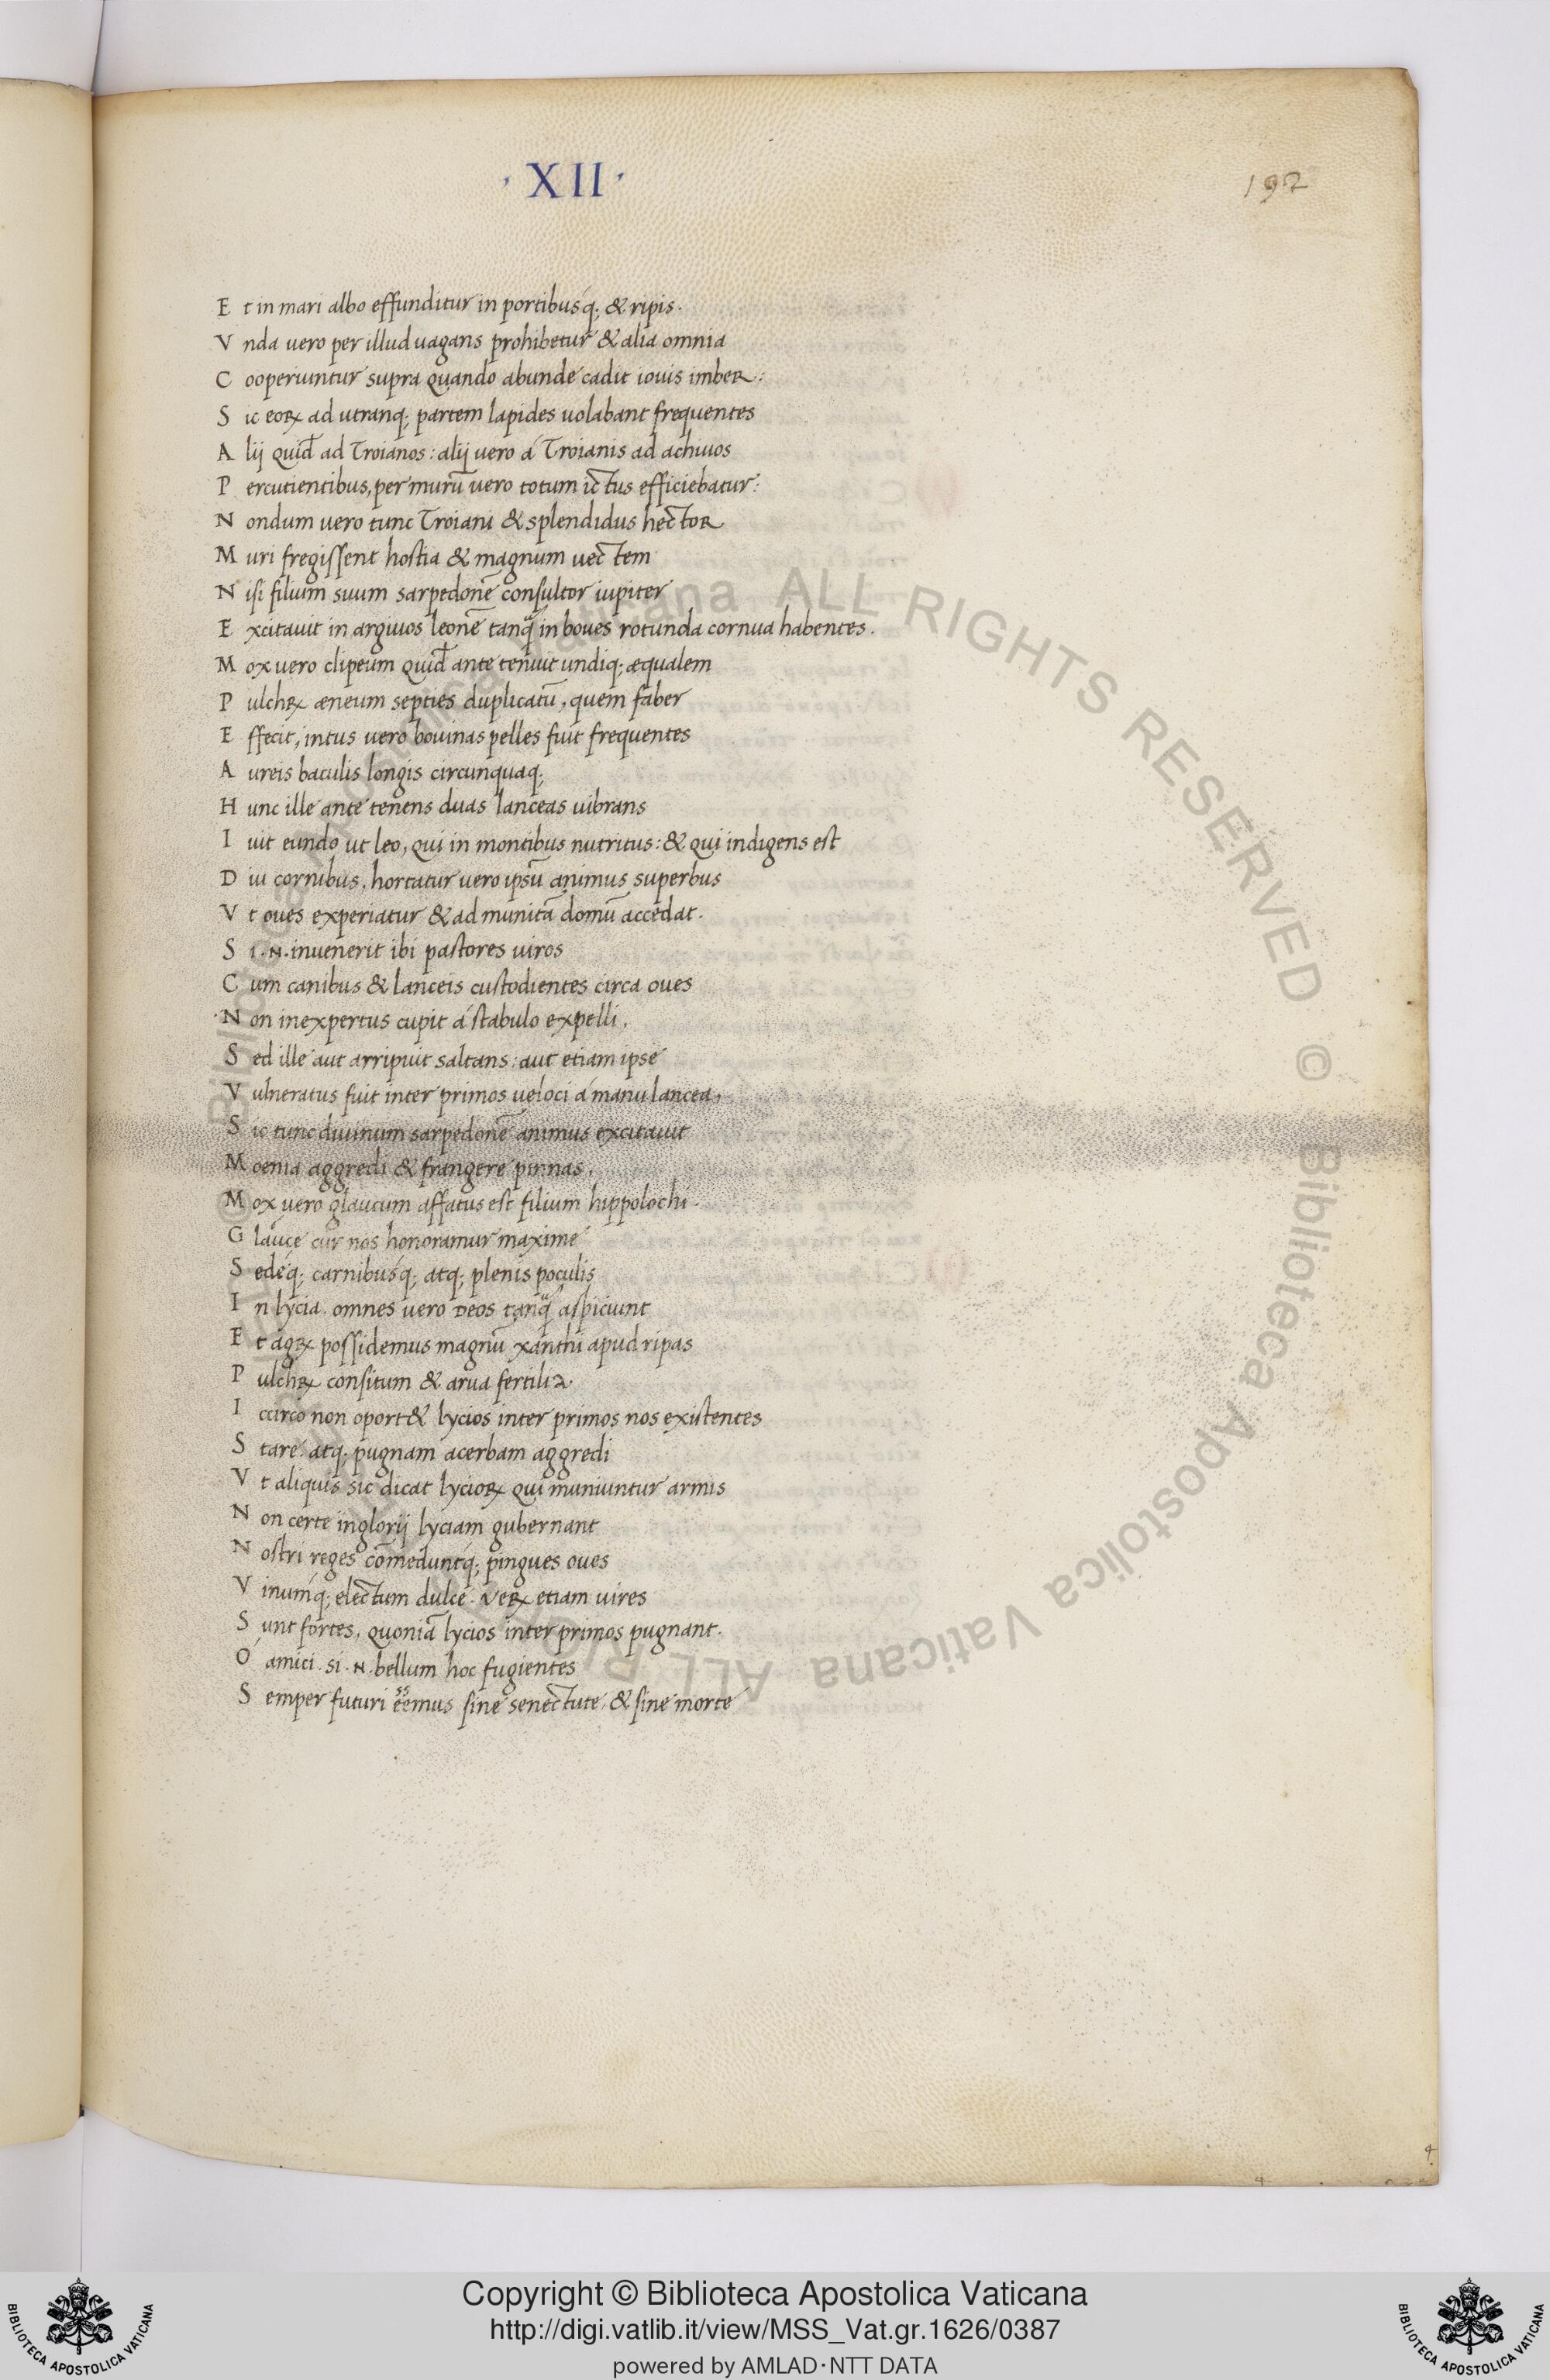 · XII ·
192
Et in mari albo effunditur in portibusq; & ripis.
Vnda uero per illud uagans prohibetur & alia omnia
Cooperiuntur supra quando abunde cadit iouis imber:
Sic eoꝝ ad utranq; partem lapides uolabant frequentes
Alij quid̄ ad Troianos: alij uero á Troianis ad achiuos
Percutientibus, per murū uero totum ictus efficiebatur:
Nondum uero tunc Troiani & splendidus hector
Muri fregissent hostia & magnum uectem
Nisi filium suum sarpedonē consultor iupiter
Excitauit in argiuos leonē tanq̃ in boues rotunda cornua habentes.
Mox uero clipeum quid̄ ante tenuit undiq; æqualem
Pulchꝝ æneum septies duplicatū, quem faber
Effecit, intus uero bouinas pelles fuit frequentes
Aureis baculis longis circunquaq;
Hunc ille ante tenens duas lanceas uibrans
Iuit eundo ut leo, qui in montibus nutritus: & qui indigens est
Diu cornibus, hortatur uero ipsū animus superbus
Vt oues experiatur & ad munitā domū accedat.
Si .N. inuenerit ibi pastores uiros
Cum canibus & lanceis custodientes circa oues
Non inexpertus cupit á stabulo expelli.
Sed ille aut arripuit saltans: aut etiam ipse
Vulneratus fuit inter primos ueloci á manu lancea,
Sic tunc diuinum sarpedonē animus excitauit
Moenia aggredi & frangere pinnas.
Mox uero glaucum affatus est filium hippolochi.
Glauce cur nos honoramur maxime
Sedeq; carnibusq; atq; plenis poculis
In lycia. omnes uero Deos tanq̃ aspiciunt
Et agꝝ possidemus magnū xanthi apud ripas
Pulchꝝ consitum & arua fertilia.
Iccirco non oport& lycios inter primos nos existentes
Stare. atq; pugnam acerbam aggredi
Vt aliquis sic dicat lycioꝝ qui muniuntur armis
Non certe inglorij lyciam gubernant
Nostri reges comeduntq; pingues oues
Vinumq; electum dulce. Veꝝ etiam uires
Sunt fortes, quoniā lycios inter primos pugnant.
Ó amici. si .N. bellum hoc fugientes
Semper futuri eẽmus sine senectute, & sine morte
© Biblioteca Apostolica Vaticana ALL RIGHTS RESERVED © Biblioteca Apostolica Vaticana ALL RIGHTS RESERVED
Copyright © Biblioteca Apostolica Vaticana
http://digi.vatlib.it/view/MSS_Vat.gr.1626/0387
powered by AMLAD·NTT DATA
BIBLIOTECA APOSTOLICA VATICANA
BIBLIOTECA APOSTOLICA VATICANA